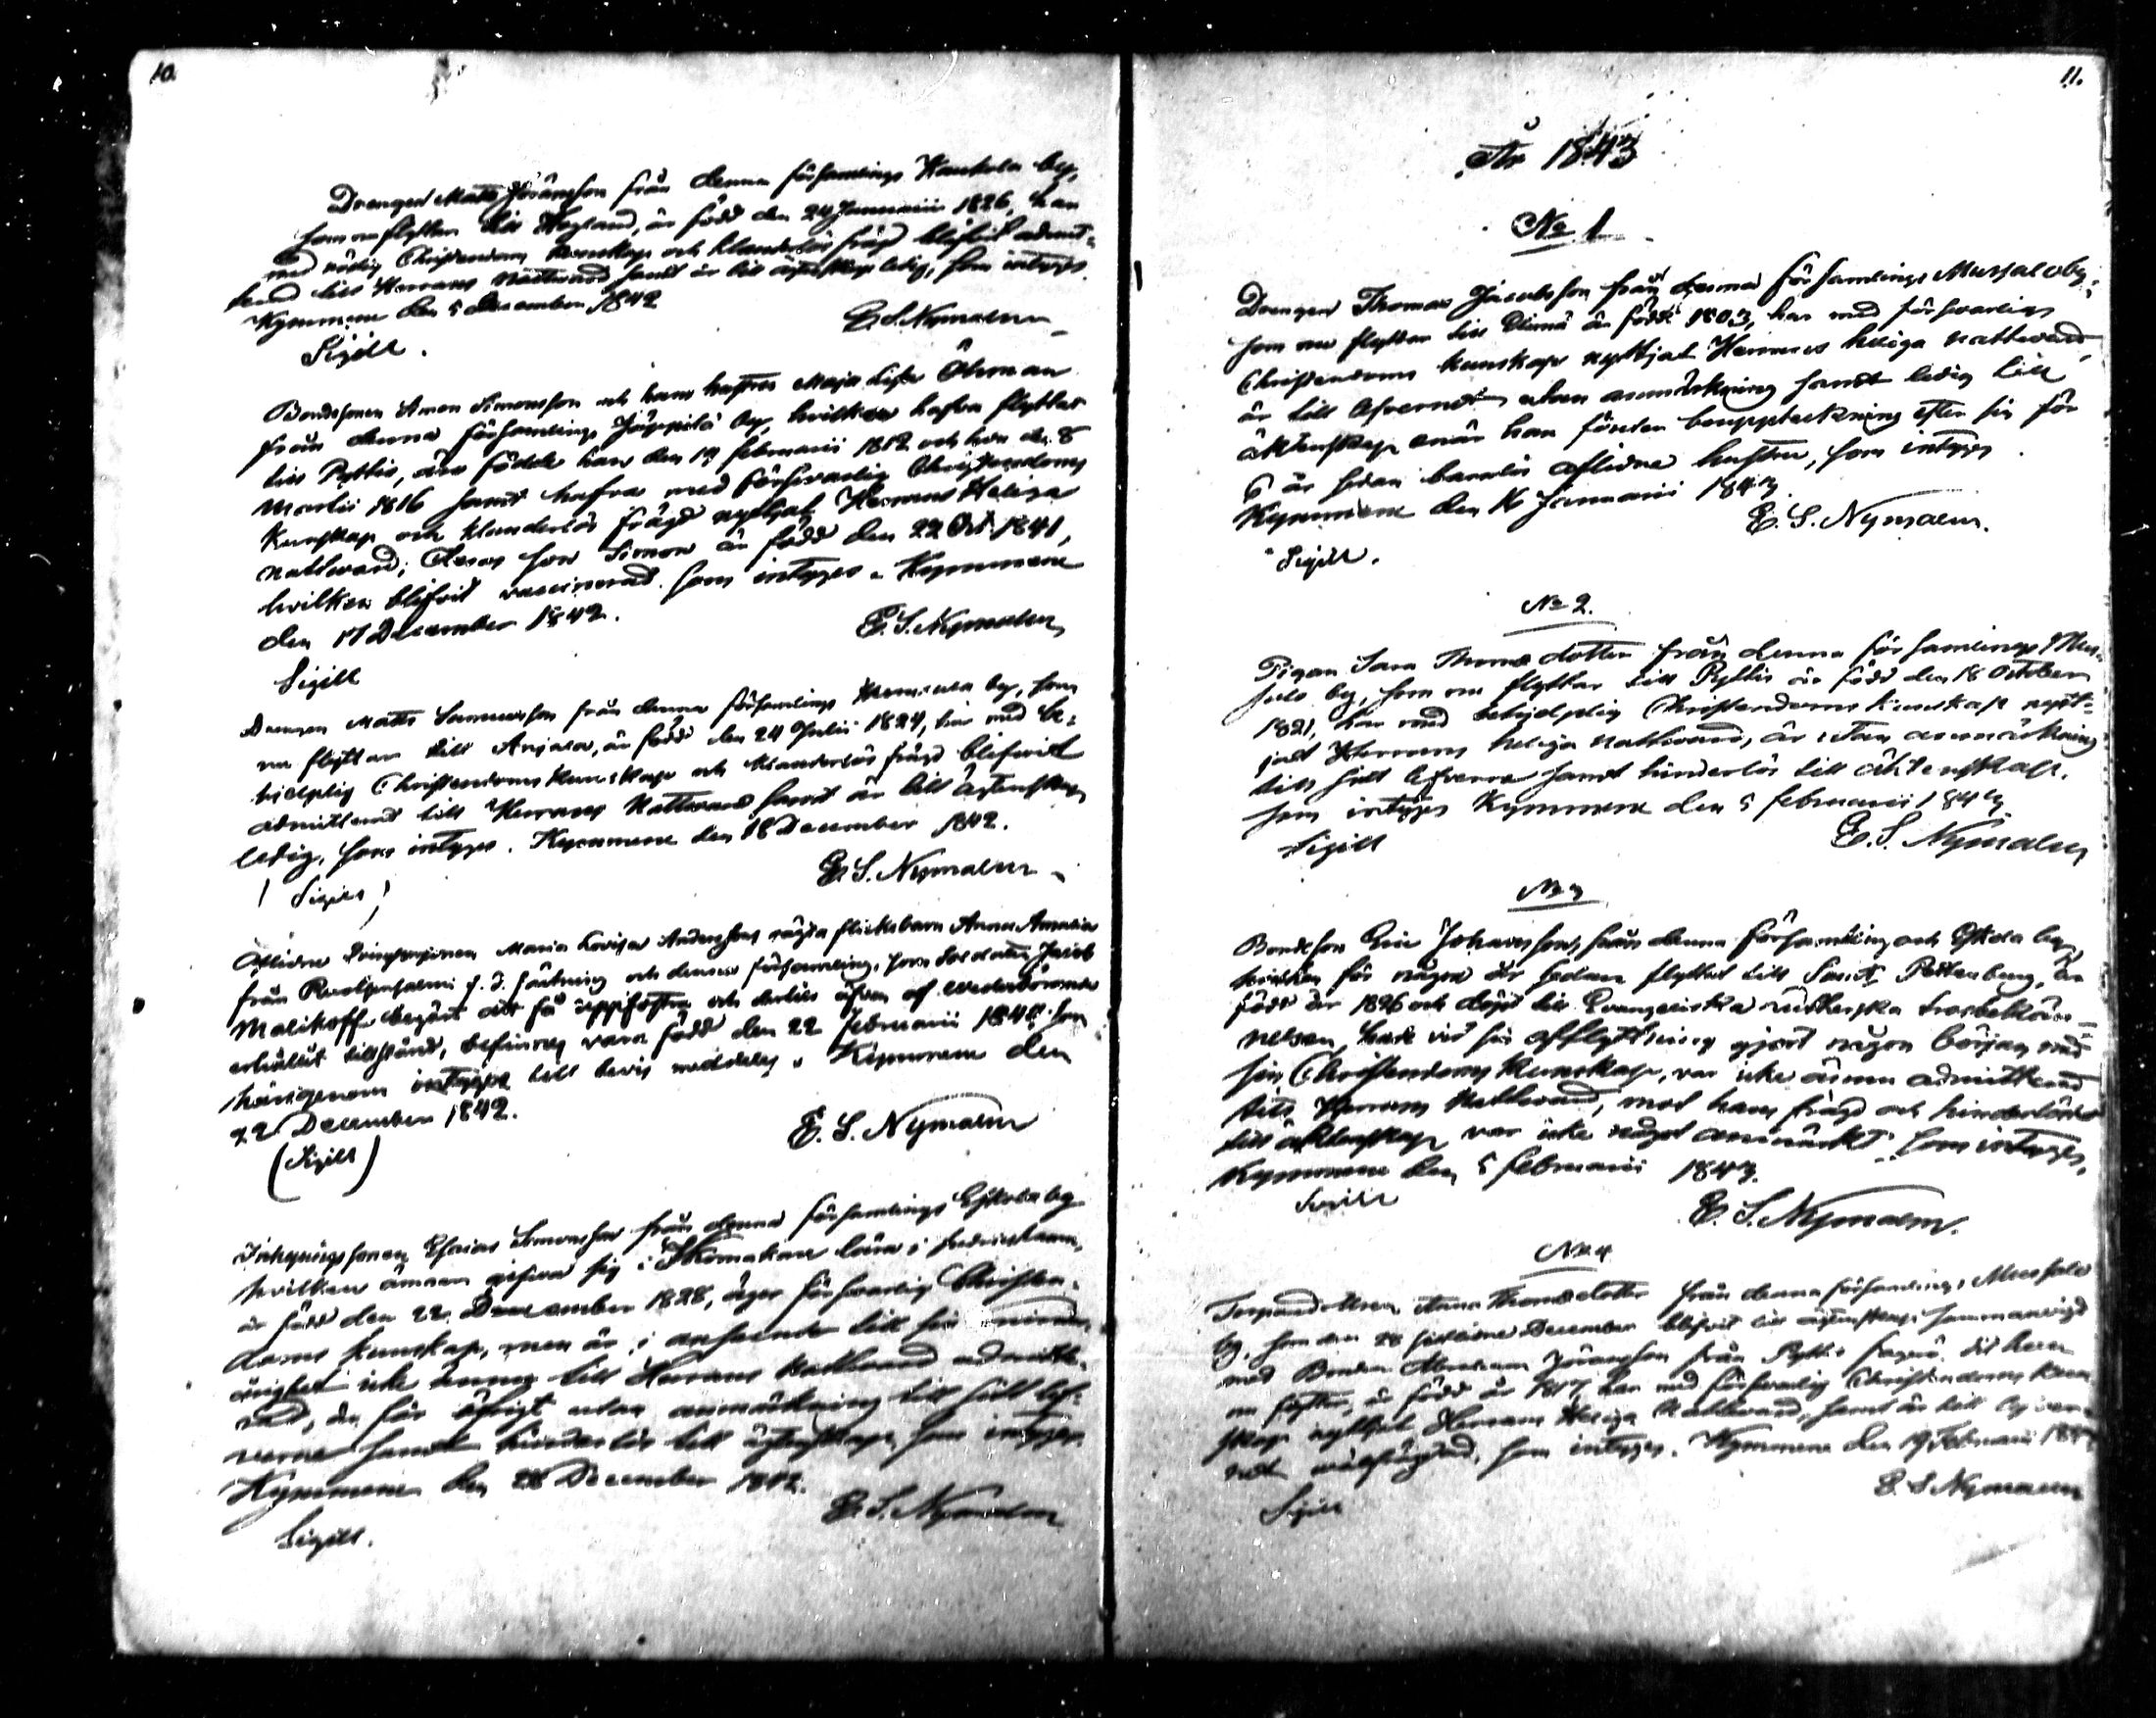 10.
Drengen Matts Jöransson från denna församlings Kankola by,
som nu flyttar till Hogland, är född den 24 Januarii 1826, har
med nödig Christendoms kunskap och klanderlös frägd blifvit admit-
terad till Herrans Nattward samt är till äktenskap ledig, som intygas
Kymmene den 5 December 1842
E. S. Nymalm
Sigill.
Bondesonen Simonsson och hans hustru Maja Lisa Öhman
från denna församlings Jäppilä by, hvilka hafva flyttat
till Pyttis, äro födde han den 19 Februarii 1812 och hon den 8
Martii 1816 samt hafva med försvarlig Christendoms
Kunskap och klanderlös frägd nyttjat Herrans Heliga
Nattward; Deras son Simon är född den 22 Oct. 1841,
hvilken blifvit vaccinerad. som intygas. Kymmene
den 17 December 1842.
E. S. Nymalm
Sigill
Drengen Matts från denna församlings by, som
nu flyttar till Anjala, är född den 24 Julii 1824, har med be-
hielplig Christendoms Kunskap och klanderlös frägd blifwit
admitterad till Herrans Nattward samt är till äktenskap
ledig, som intyges. Kymmene den 18 December 1842.
E. S. Nymalm
(Sigill)
Aflidne Maria Lovisa Andersons oägta flickebarn Anna Amalia
från f. d. och denna församling, som Soldaten Jacob
Malikoff begärt att få uppfostra och dertill äfven af wederbörande
erhållit tillstånd, befinnes vara född den 22 Februarii som
härigenom intygas till bevis meddelas. Kymmene den
22 December 1842.
E. S. Nymalm
(Sigill)
Esaias Simonsson från denna församlings Eskola by
hvilken ämnar gifwa sig i Skomakare lära i Fredrikshamn,
är född den 22 December 1828, äger försvarlig Christen-
doms kunskap, men är i anseende till sin minder-
årighet icke ännu till Herrans Nattward admitte-
rad, för öfrigt utan anmärkning till sitt lef-
verne samt hinderlös till äktenskap, som intyges.
Kymmene den 28 December 1842.
E. S. Nymalm
Sigill.
11.
År 1843
No 1
Drengen Thomas Jacobsson från denna församlings Mussalo by,
som nu flyttar till Elimä är född 1803, har med försvarlig
Christendoms kunskap nyttjat Herrans heliga nattward,
är till lefvernet utan anmärkning samt ledig till
äktenskap enär han företer bouppteckning efter sin för
6 år sedan barnlös aflidna hustru, som intyges
Kymmene den 16 Januarii 1843
E. S. Nymalm.
Sigill.
No 2.
Pigan Sara Thomædotter från denna församlings Mus-
salo by, som nu flyttar till Pyttis är född den 18 October
1821, har med behjelplig Christendoms kunskap nytt-
jat Herrans heliga nattward, är utan anmärkning
till sitt lefverne samt hinderlös till äktenskap.
som intyges Kymmene den 5 Februarii 1843
Sigill
E. S. Nymalm
No 3
Bondeson Eric Johansson, från denna församling och Eskola by
hvilken för några år sedan flyttat till Sanct Petersburg, är
född år 1826 och döpt till Evangeliska lutherska trosbekän-
nelsen, hade vid sin afflyttning gjort någon början med
sin Christendoms Kunskap, var icke ännu admitterad
till Herrans Nattward, mot hans frägd och hinderlöshet
till äktenskap var icke något anmärkt som intyges,
Kymmene den 5 Februarii 1843.
Sigill
E. S. Nymalm.
No 4
Anna Thomædotter från denna församlings Mussalo
by, som den 28 sistledne December blifvit till äktenskap sammanvigd
med Bonden Abraham Jöransson från Pyttis dit hon
nu flyttar, är född år 1817, har med försvarlig Christendoms kun-
skap nyttjat Herrans Heliga Nattward, samt är till lefver-
net wälfrägdad, som intyges. Kymmene den 19 Februarii 1843
E. S. Nymalm
Sigill